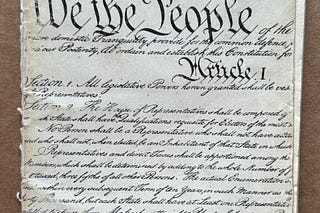 We the People of the
insure domestic Tranquility, provide for the common defence,
and our Posterity, do ordain and establish this Constitution for
Article I
Section. 1. All legislative Powers herein granted shall be
Representatives
Section. The House of Representatives shall be composed
State shall have Qualifications requisite for Electors of the most
No Person shall be a Representative who shall not have
and who shall not, when elected, be an Inhabitant of that State in which
Representatives and direct Taxes shall be apportioned among the
which shall be determined by adding to the whole Number of
three fifths of all other Persons. The actual Enumeration
and within every subsequent Term of ten Years, in such Manner as
thousand, but each State shall have at Least one Representative